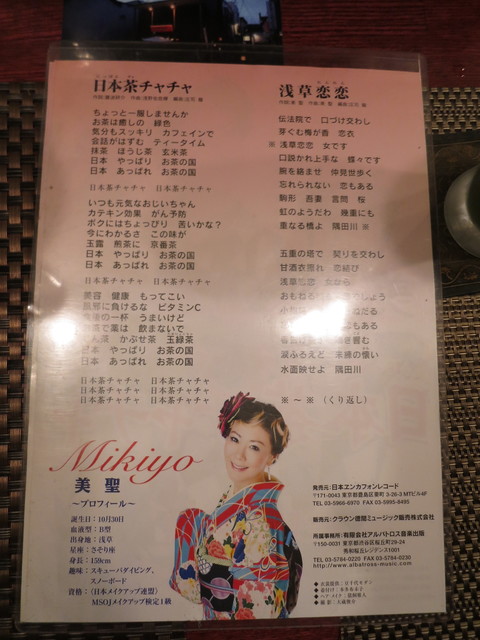 日本茶チャチャ
ちょっと一服しませんか
お茶は癒しの 緑色
気分もスッキリ カフェインで
会話がはずむ ティータイム
抹茶 ほうじ茶 玄米茶
日本 やっぱり お茶の国
日本 あっぱれ お茶の国
日本茶チャチャ 日本茶チャチャ
いつも元気なおじいちゃん
カテキン効果 がん予防
ボクにはちょっぴり 苦いかな?
今にわかるさ この味が
玉露 煎茶に 京番茶
日本 やっぱり お茶の国
日本 あっぱれ お茶の国
日本茶チャチャ 日本茶チャチャ
美容 健康 もってこい
風邪に負けるな ビタミンC
の一杯 うまいけど
で薬は 飲まないで
茶 かぶせ茶 玉緑茶
日本 やっぱり お茶の国
日本 あっぱれ お茶の国
日本茶チャチャ 日本茶チャチャ
日本茶チャチャ 日本茶チャチャ
日本茶チャチャ 日本茶チャチャ
浅草恋恋
伝法院で 口づけ交わし
芽ぐむ梅が香 恋衣
※ 浅草恋恋 女です
口説かれ上手な 蝶々です
腕を絡ませ 仲見世歩く
忘れられない 恋もある
駒形 吾妻 言問 桜
虹のようだわ 幾重にも
重なる橋よ 隅田川 ※
五重の塔で 契りを交わし
甘酒衣擦れ 恋結び
浅草恋恋 女なら
涙ふるえど 未練の償い
水面映せよ 隅田川
※ ~ ※ (くり返し)
Mikiyo
美聖
~プロフィール~
誕生日:10月30日
血液型:B型
出身地:浅草
星座:さそり座
身長:159cm
趣味:スキューバダイビング、
スノーボード
資格:(日本メイクアップ連盟)
MSOJメイクアップ検定1級
発売元:日本エンカフォンレコード
〒171-0043 東京都豊島区要町 3-26-3 MTビル4F
TEL 03-5966-6970 FAX 03-5995-8495
販売元:クラウン徳間ミュージック販売株式会社
所属事務所:有限会社アルバトロス音楽出版
〒150-0031 東京都渋谷区桜丘町29-24
秀和桜丘レジデンス1001
TEL 03-5784-0220 FAX 03-5784-0230
http://www.albatross-music.com